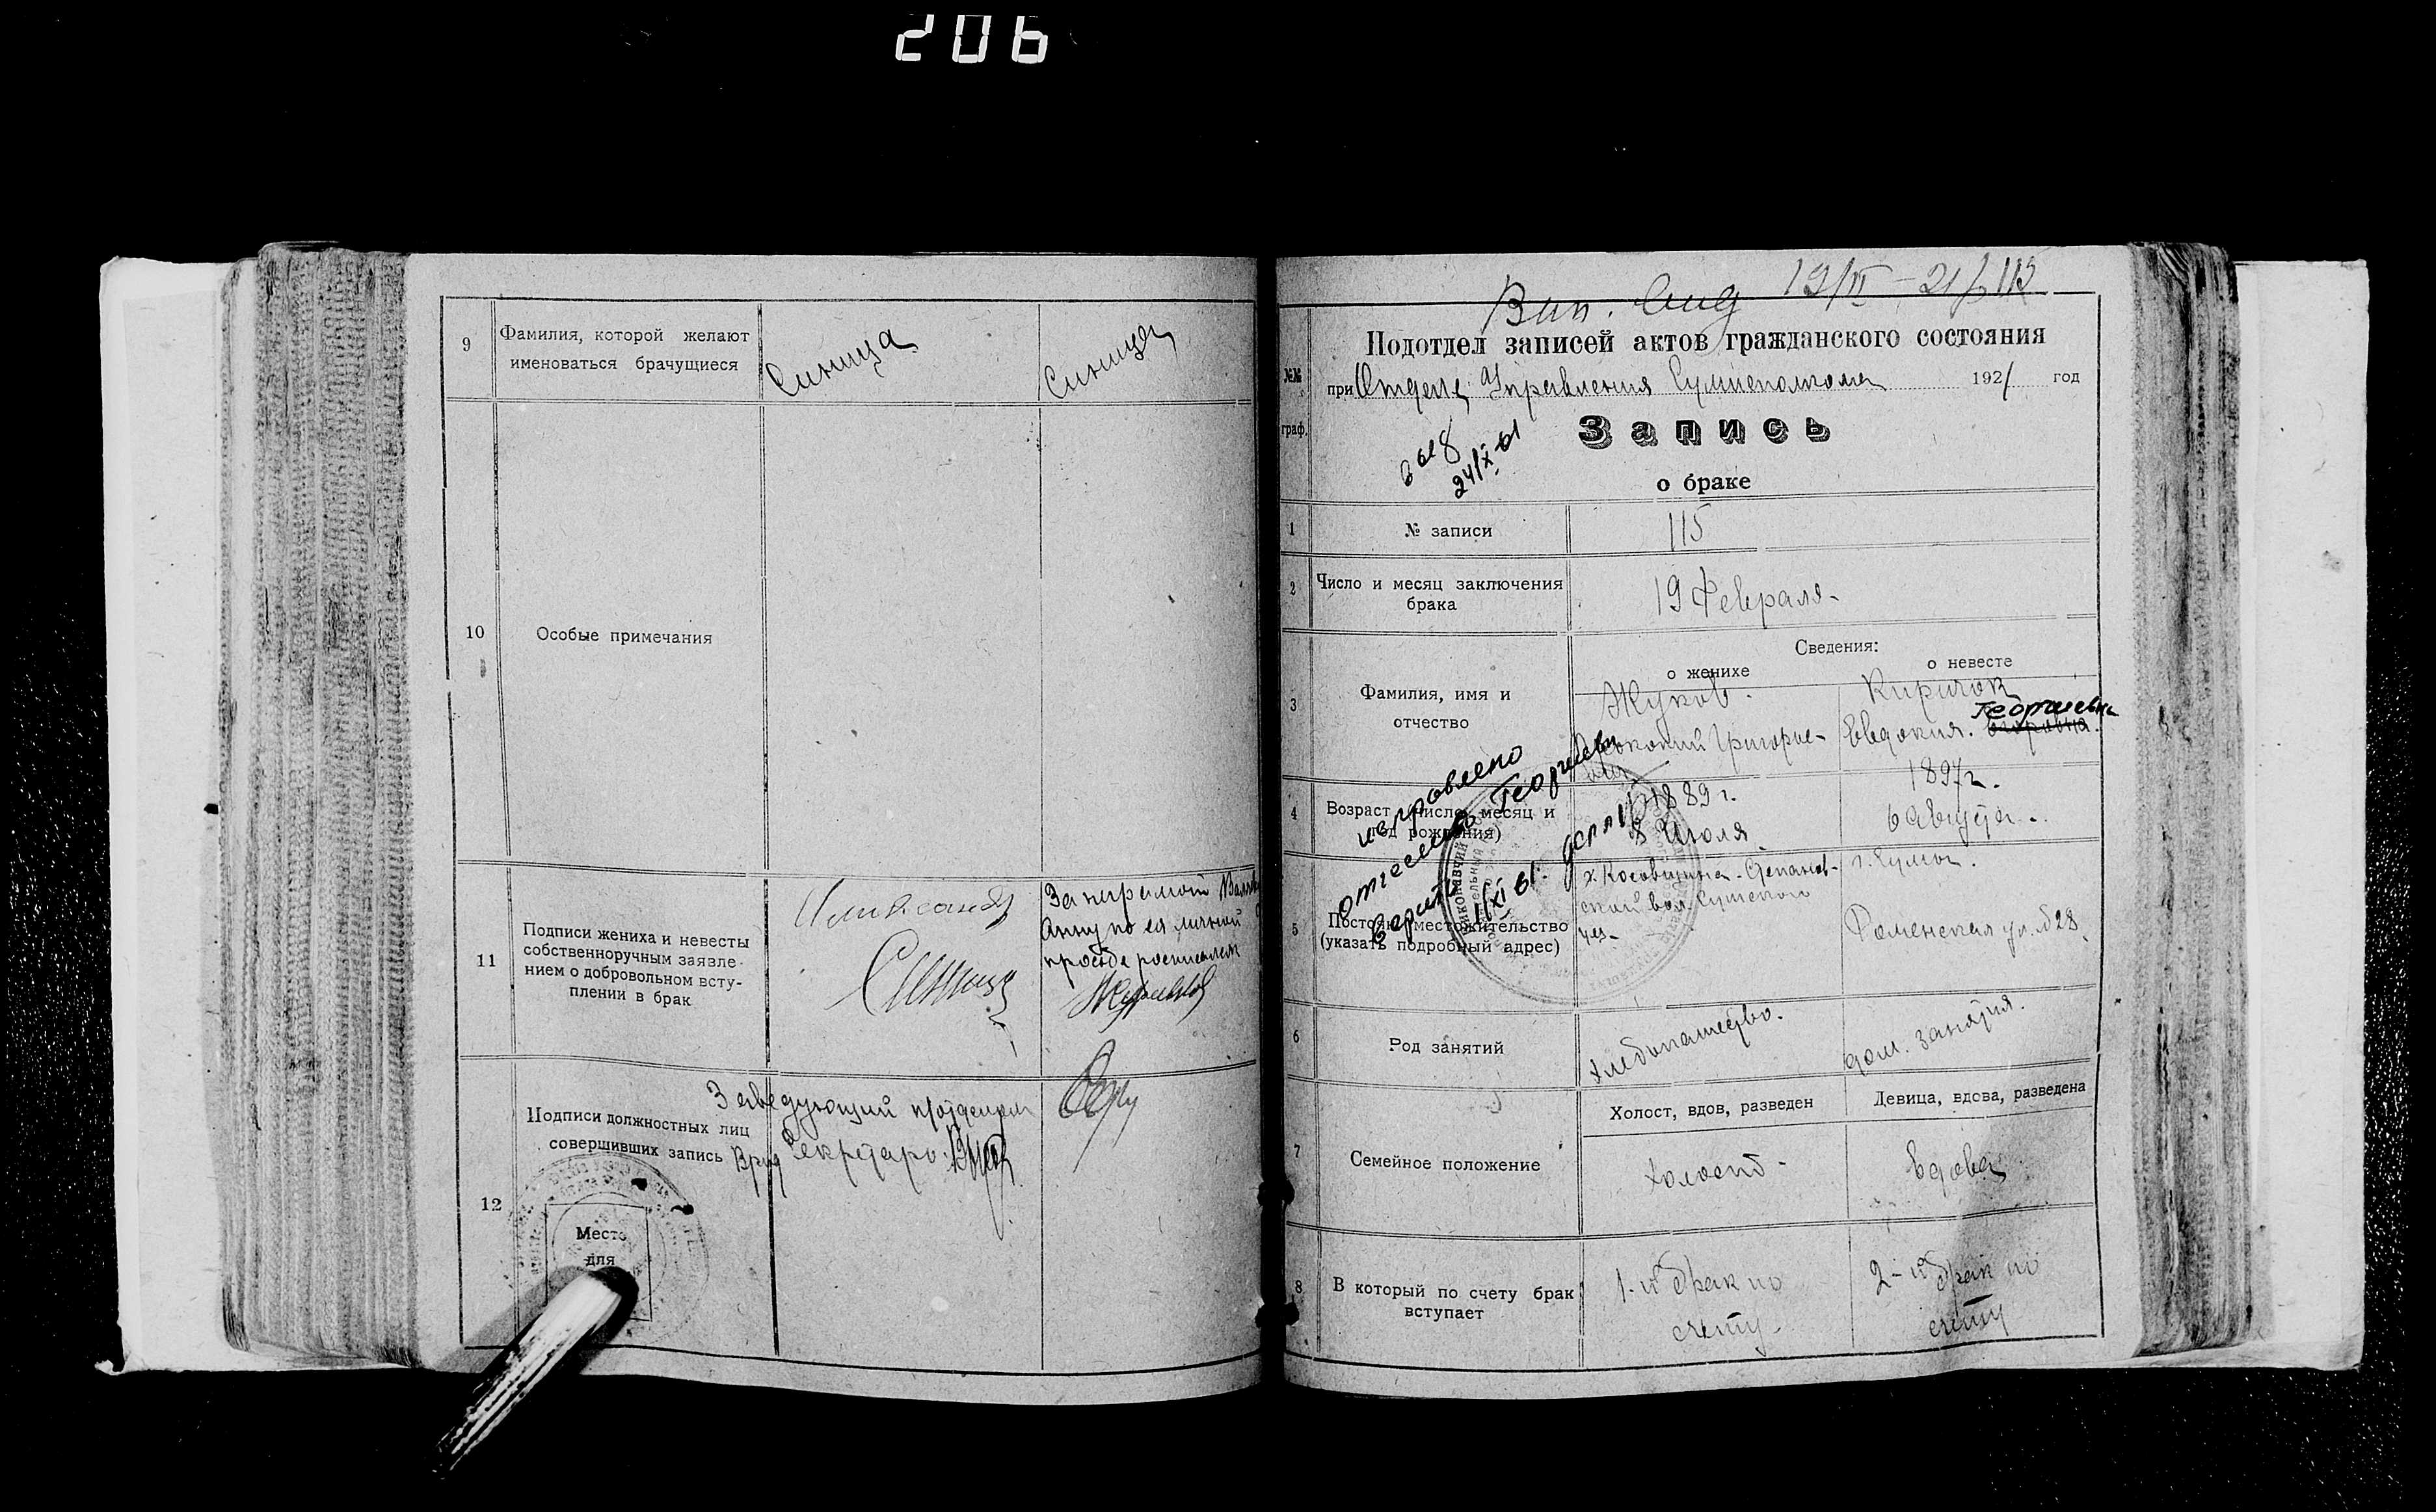 206
9
Фамилия, которой желают
именоваться брачущиеся
Синица
Синица
10
Особые примечания
11
Подписи жениха и невесты
собственноручным заявле-
нием о добровольном всту-
плении в брак
Александр
Синица
За неграмотн
Анну по ея личной
просьбе росписался
12
Подписи должностных лиц
совершивших запись
Заведующий п/отделом
Врид Секретаря
Место
для
Вып. 19/II-21 115
№№
граф.
Подотдел записей актов гражданского состояния
при Отделе Управления Сумисполкома 1921 год
24/X-61
Запись
о браке
1
№ записи
115
2
Число и месяц заключения
брака
19 Февраля
3
Фамилия, имя и
отчество
Сведения:
о женихе
о невесте
Жуков
Григорие-
Киричок
Георгиевна
Евдокия. Егоровна.
исправлено
отчество Георгиевна
верить
11/XI 61.
4
Возраст (число, месяц и
год рождения)
1889 г.
8 Июля
1897 г.
6 Августа
5
Постоян. местожительство
(указать подробный адрес)
х. Косовщина - Степанов-
ской вол. Сумского
уез-
г. Сумы.
Роменская ул. №28.
6
Род занятий
хлебопашество.
дом. занятия.
7
Семейное положение
Холост, вдов, разведен
Девица, вдова, разведена
холост -
вдова
8
В который по счету брак
вступает
1-й брак по
счету -
2-й брак по
счету